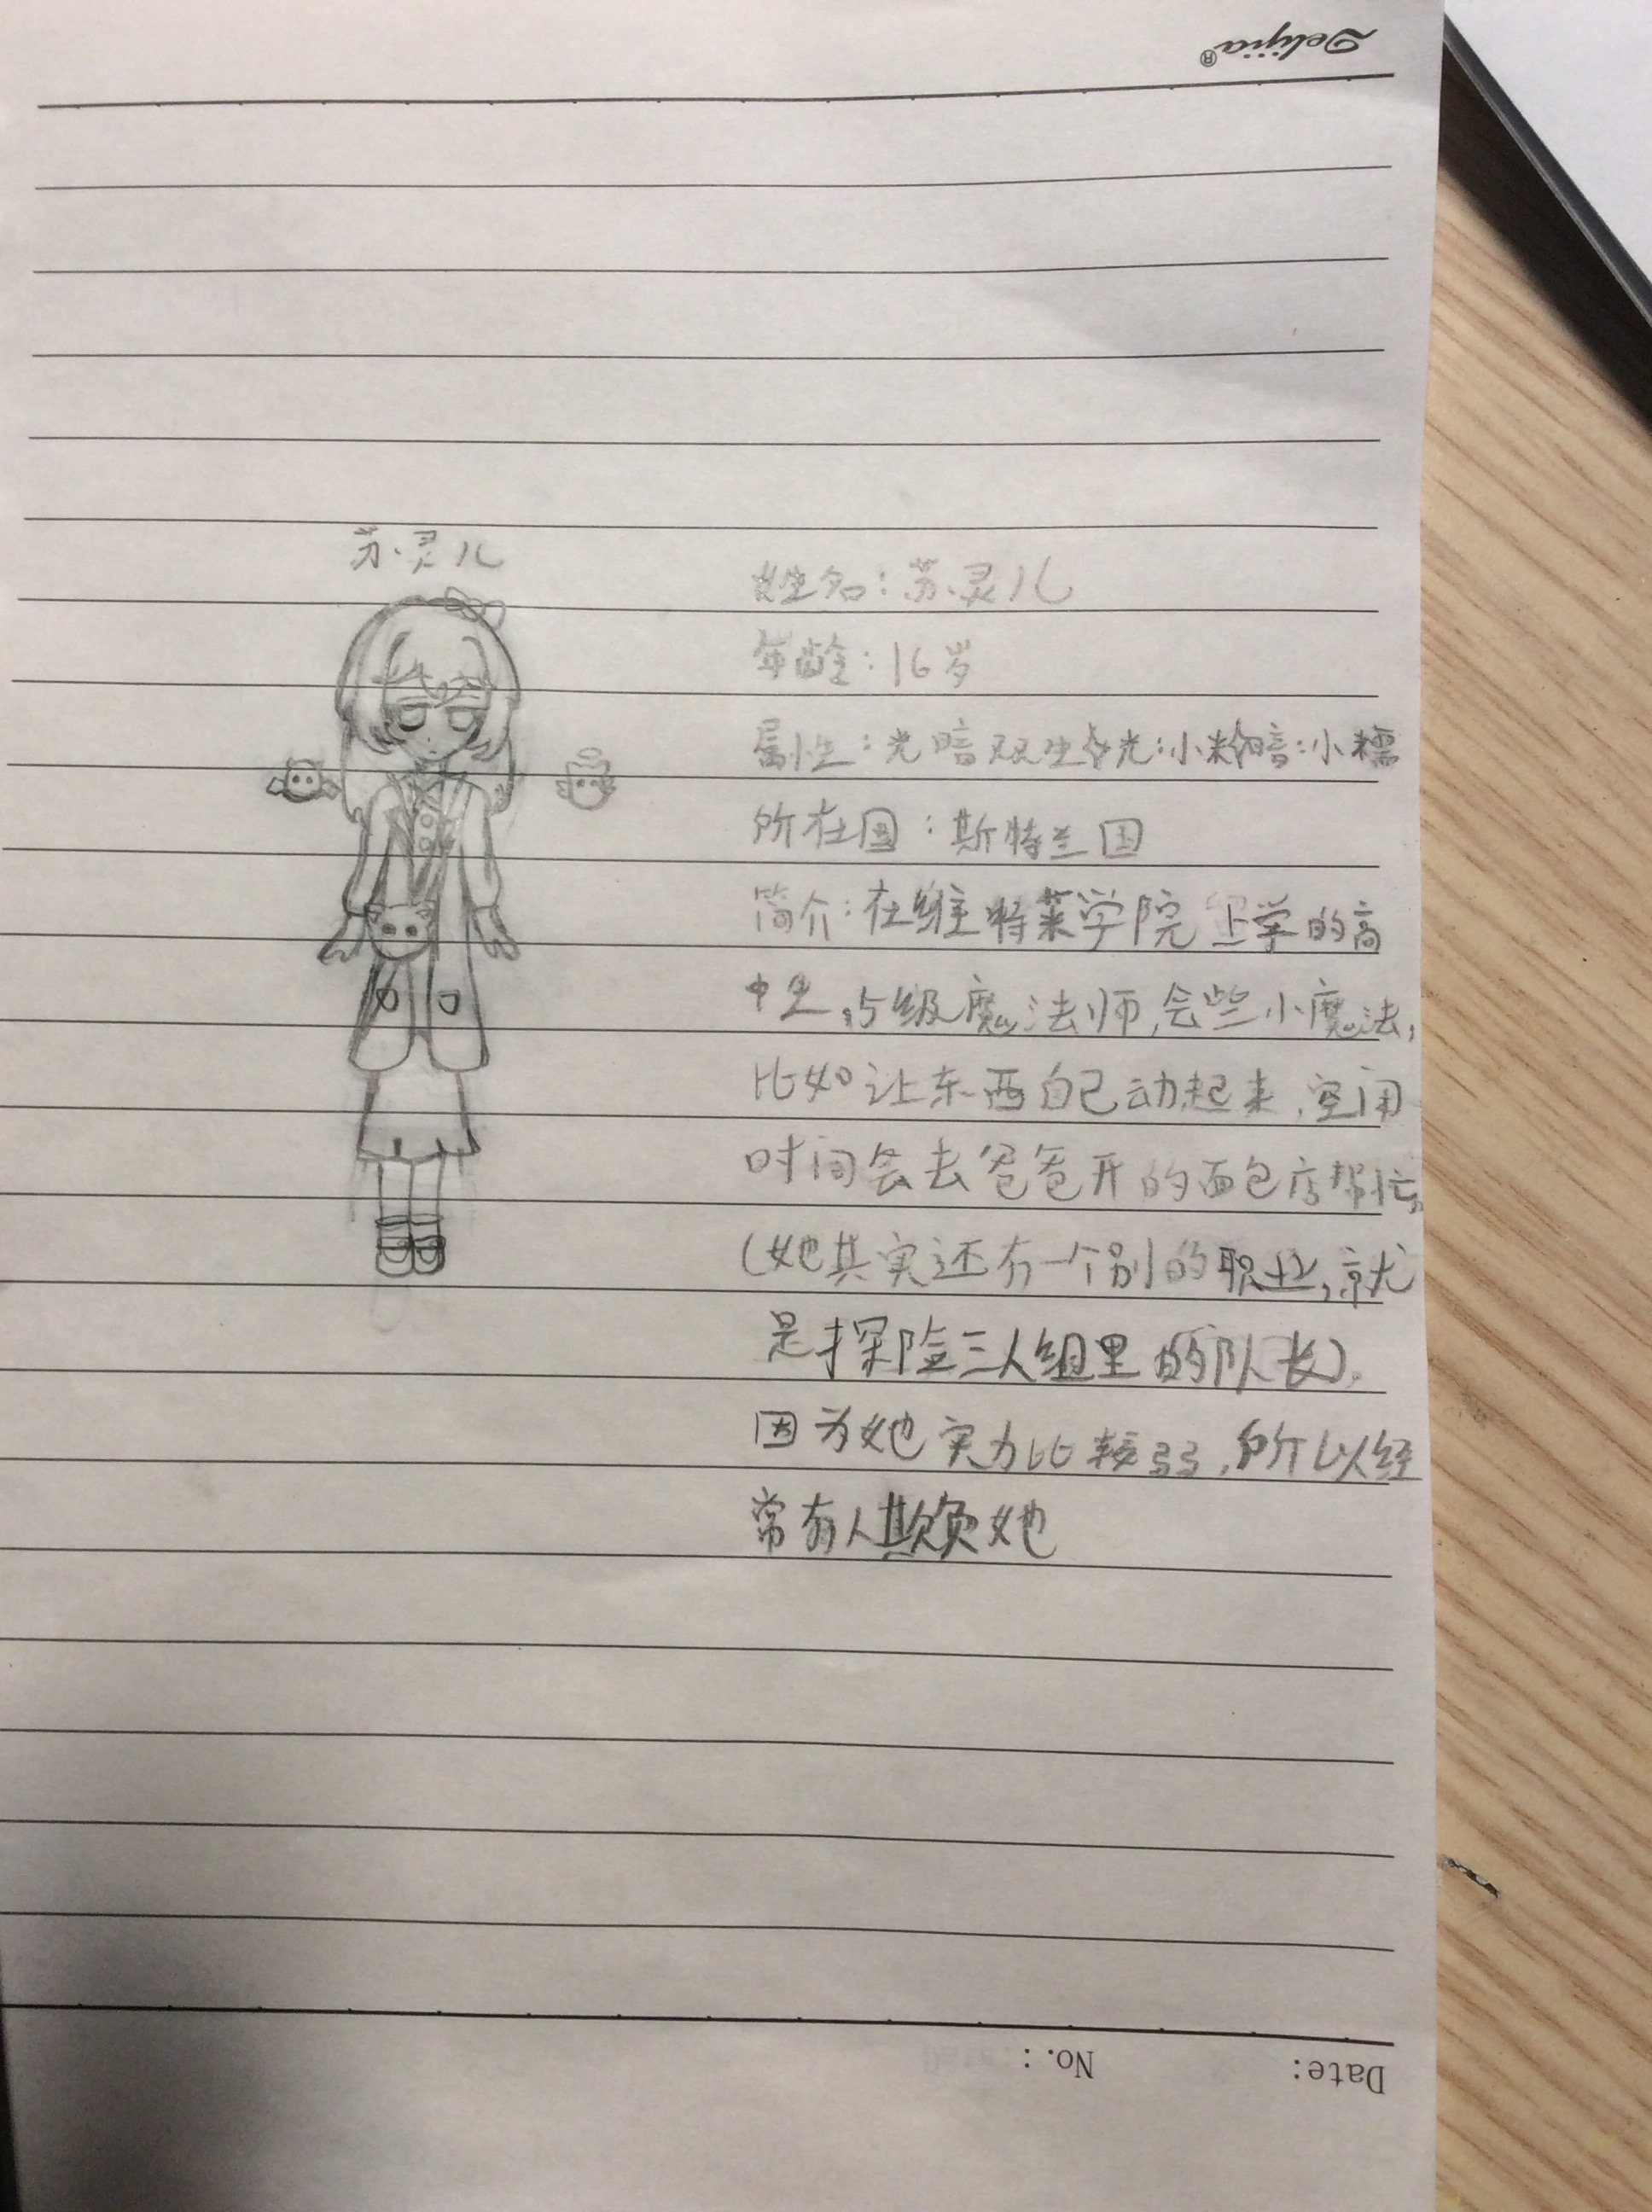 Delijia®
苏灵儿
姓名:苏灵儿
年龄:16岁
属性:光暗双生 光:小粉 暗:小糯
所在国:斯特兰国
简介:在维特莱学院上学的高
中生,5级魔法师,会些小魔法,
比如让东西自己动起来,空闲
时间会去爸爸开的面包店帮忙。
(她其实还有一个别的职业,就
是探险三人组里的队长)。
因为她实力比较弱,所以经
常有人欺负她
No.:
Date: